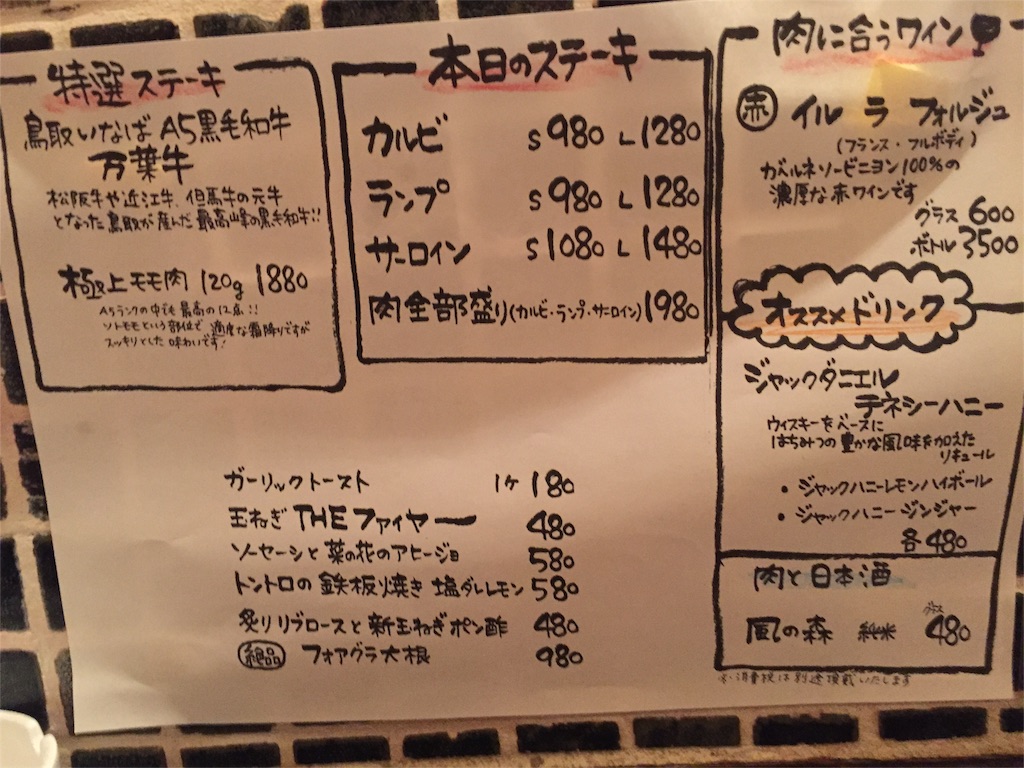 特選ステーキ
鳥取いなばA5黒毛和牛
万葉牛
松阪牛や近江牛、但馬牛の元牛
となった鳥取が産んだ最高峰の黒毛和牛!!
極上モモ肉 120g 1880
A5ランクの中でも最高の12店!!
ソトモモという部位で適度な霜降りですが
スッキリとした味わいです!
本日のステーキ
カルビ S 980 L 1280
ランプ S 980 L 1280
サーロイン S 1080 L 1480
肉全部盛り(カルビ・ランプ・サーロイン) 1980
ガーリックトースト 1ケ 180
玉ねぎTHEファイヤー 480
ソーセージと菜の花のアヒージョ 580
トントロの鉄板焼き 塩ダレレモン 580
炙りリブロースと新玉ねぎポン酢 480
絶品 フォアグラ大根 980
肉に合うワイン
赤 イル ラ フォルジュ
(フランス・フルボディ)
カベルネソービニヨン100%の
濃厚な赤ワインです
グラス 600
ボトル 3500
オススメドリンク
ジャックダニエル
テネシーハニー
ウィスキーをベースに
はちみつの豊かな風味を加えた
リキュール
・ジャックハニーレモンハイボール
・ジャックハニージンジャー
各480
肉と日本酒
風の森 純米 グラス 480
※消費税は別途頂戴いたします